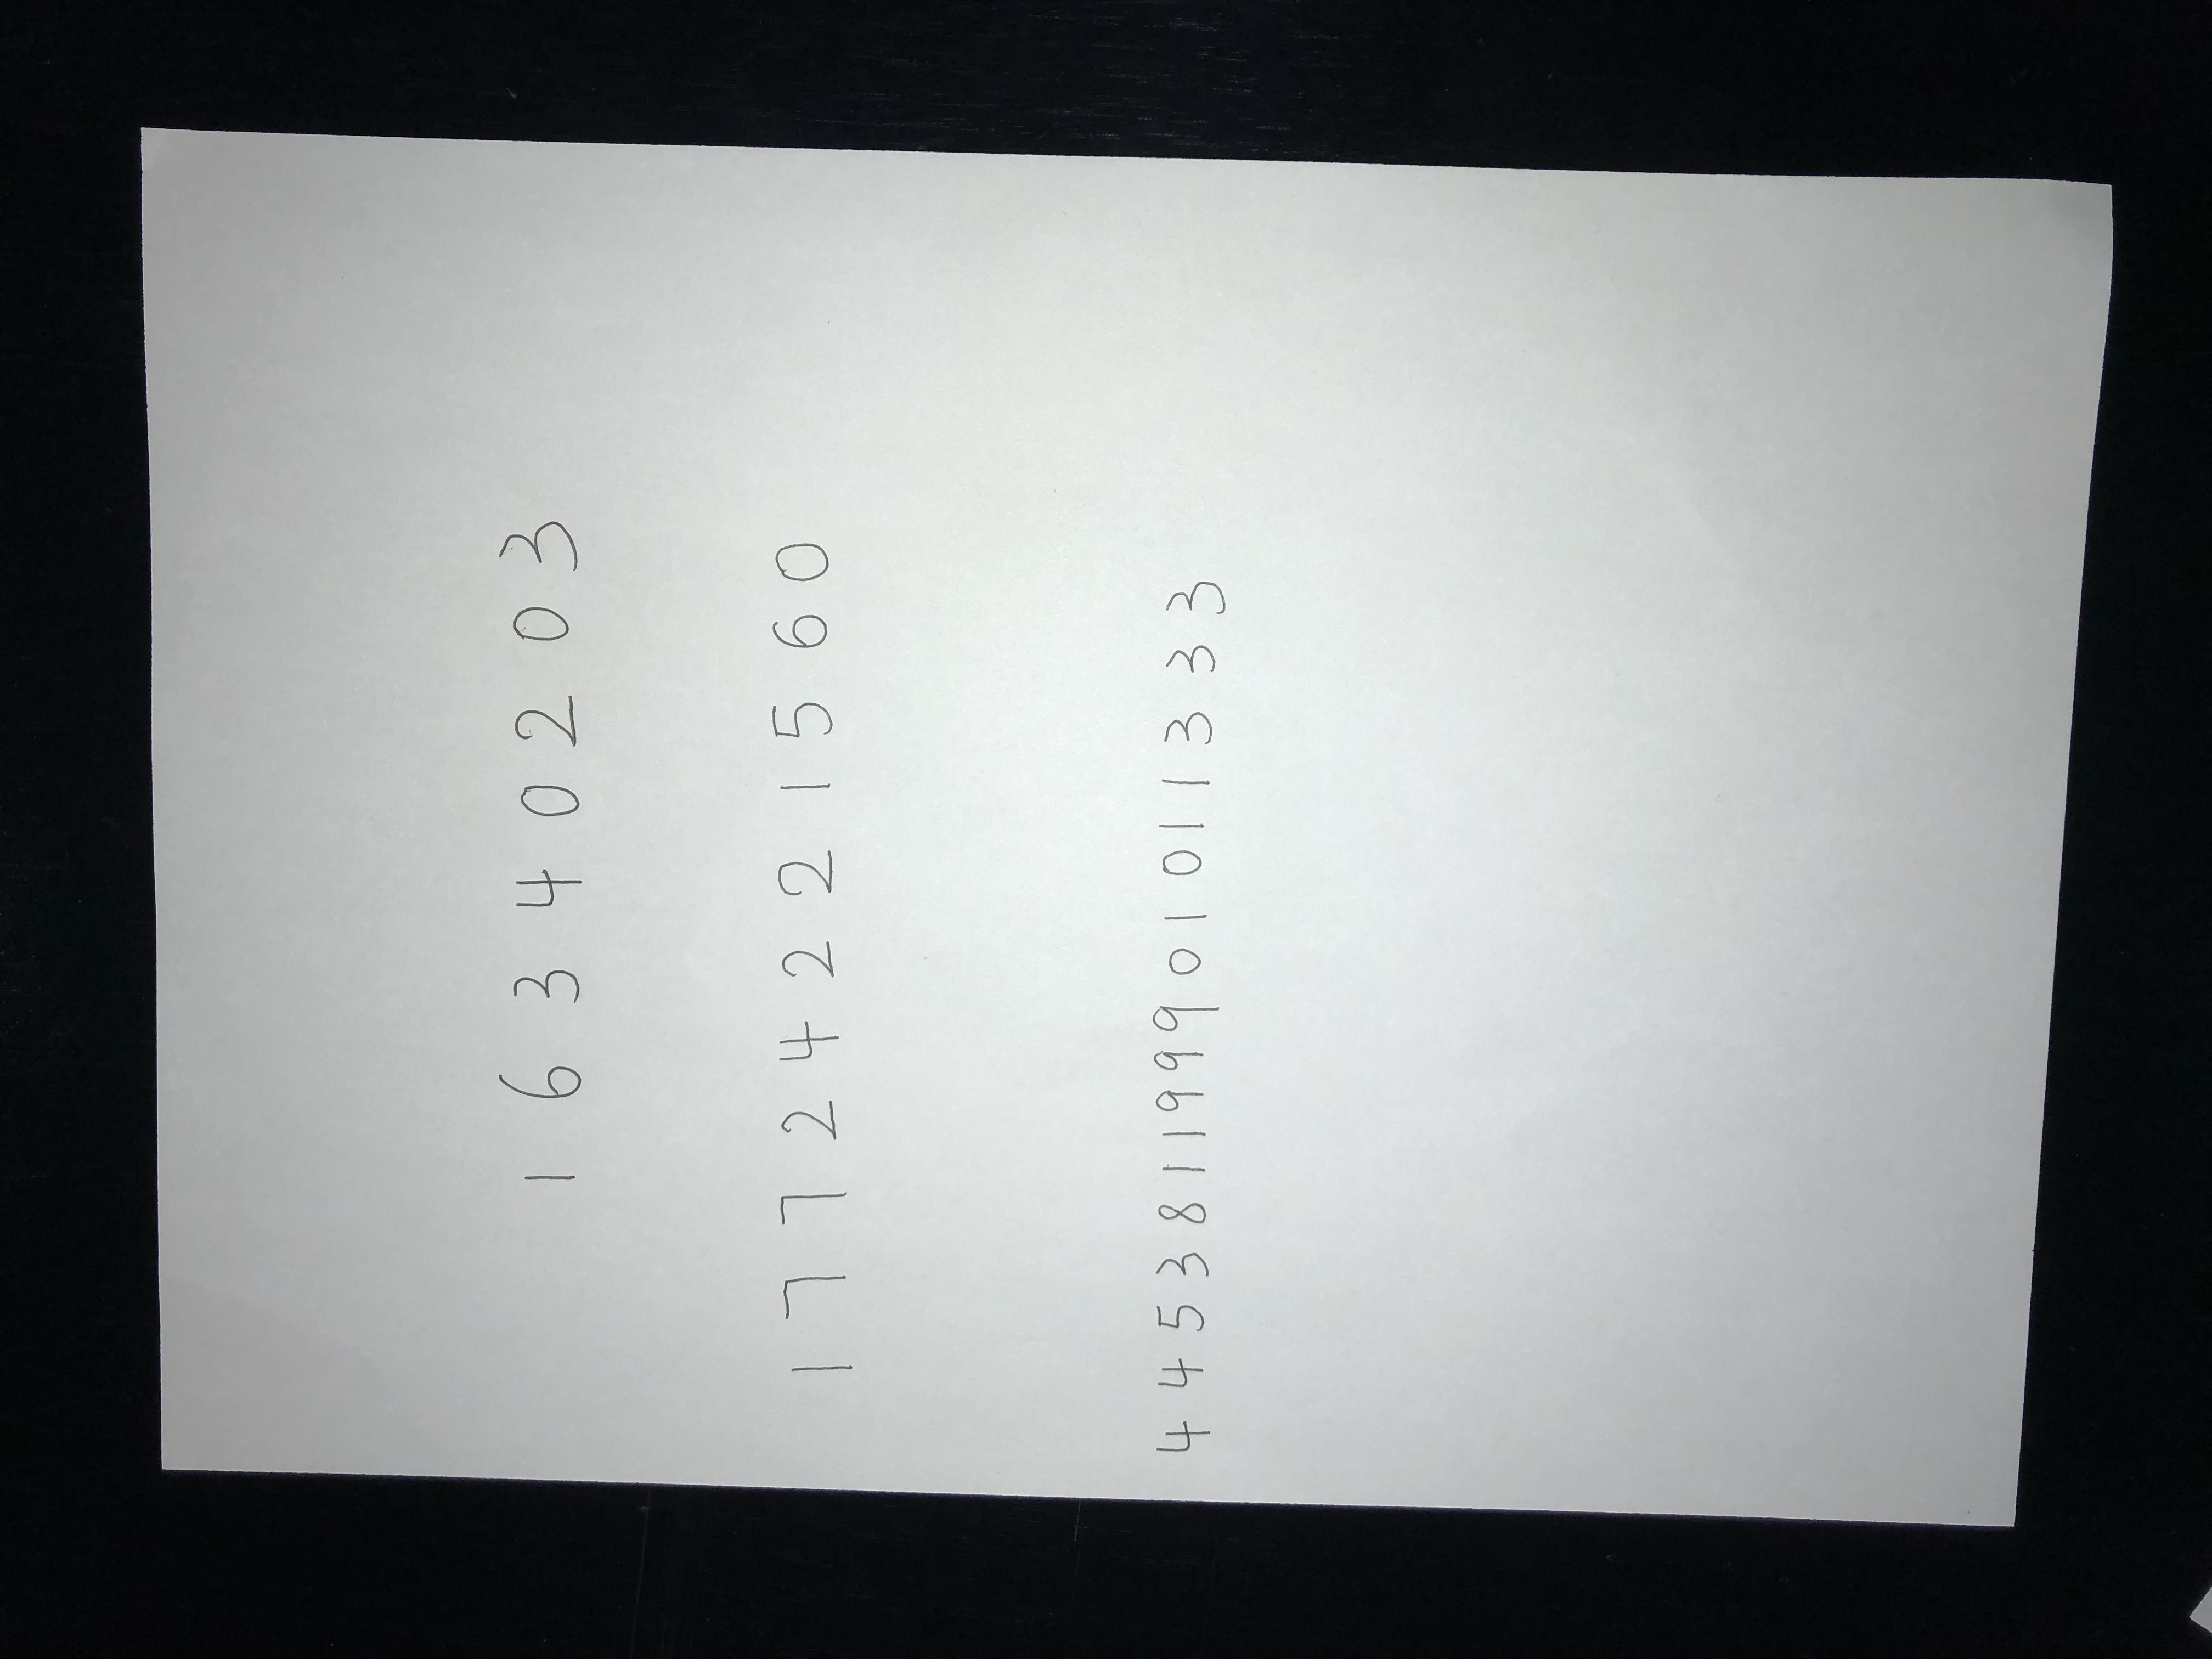 1 6 3 4 0 2 0 3
1 7 7 2 4 2 2 1 5 6 0
4 4 5 3 8 1 1 9 9 9 0 1 0 1 1 3 3 3